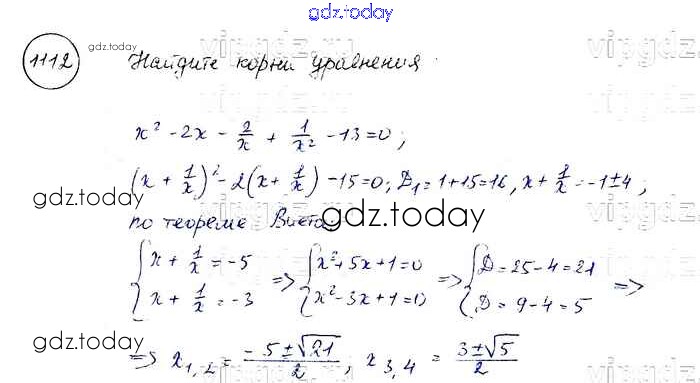 gdz.today
1112 gdz.today Найдите корни уравнения. vipgdz
x² - 2x - 2/x + 1/x² - 13 = 0;
(x + 1/x)² - 2(x + 1/x) - 15 = 0; D₁ = 1 + 15 = 16, x + 1/x = -1 ± 4;
gdz.today
по теореме Виета: gdz.today
{ x + 1/x = -5 => { x² + 5x + 1 = 0 => { D = 25 - 4 = 21 =>
{ x + 1/x = -3 { x² - 3x + 1 = 0 { D = 9 - 4 = 5
gdz.today gdz.today
=> x₁,₂ = (-5 ± √21)/2, x₃,₄ = (3 ± √5)/2